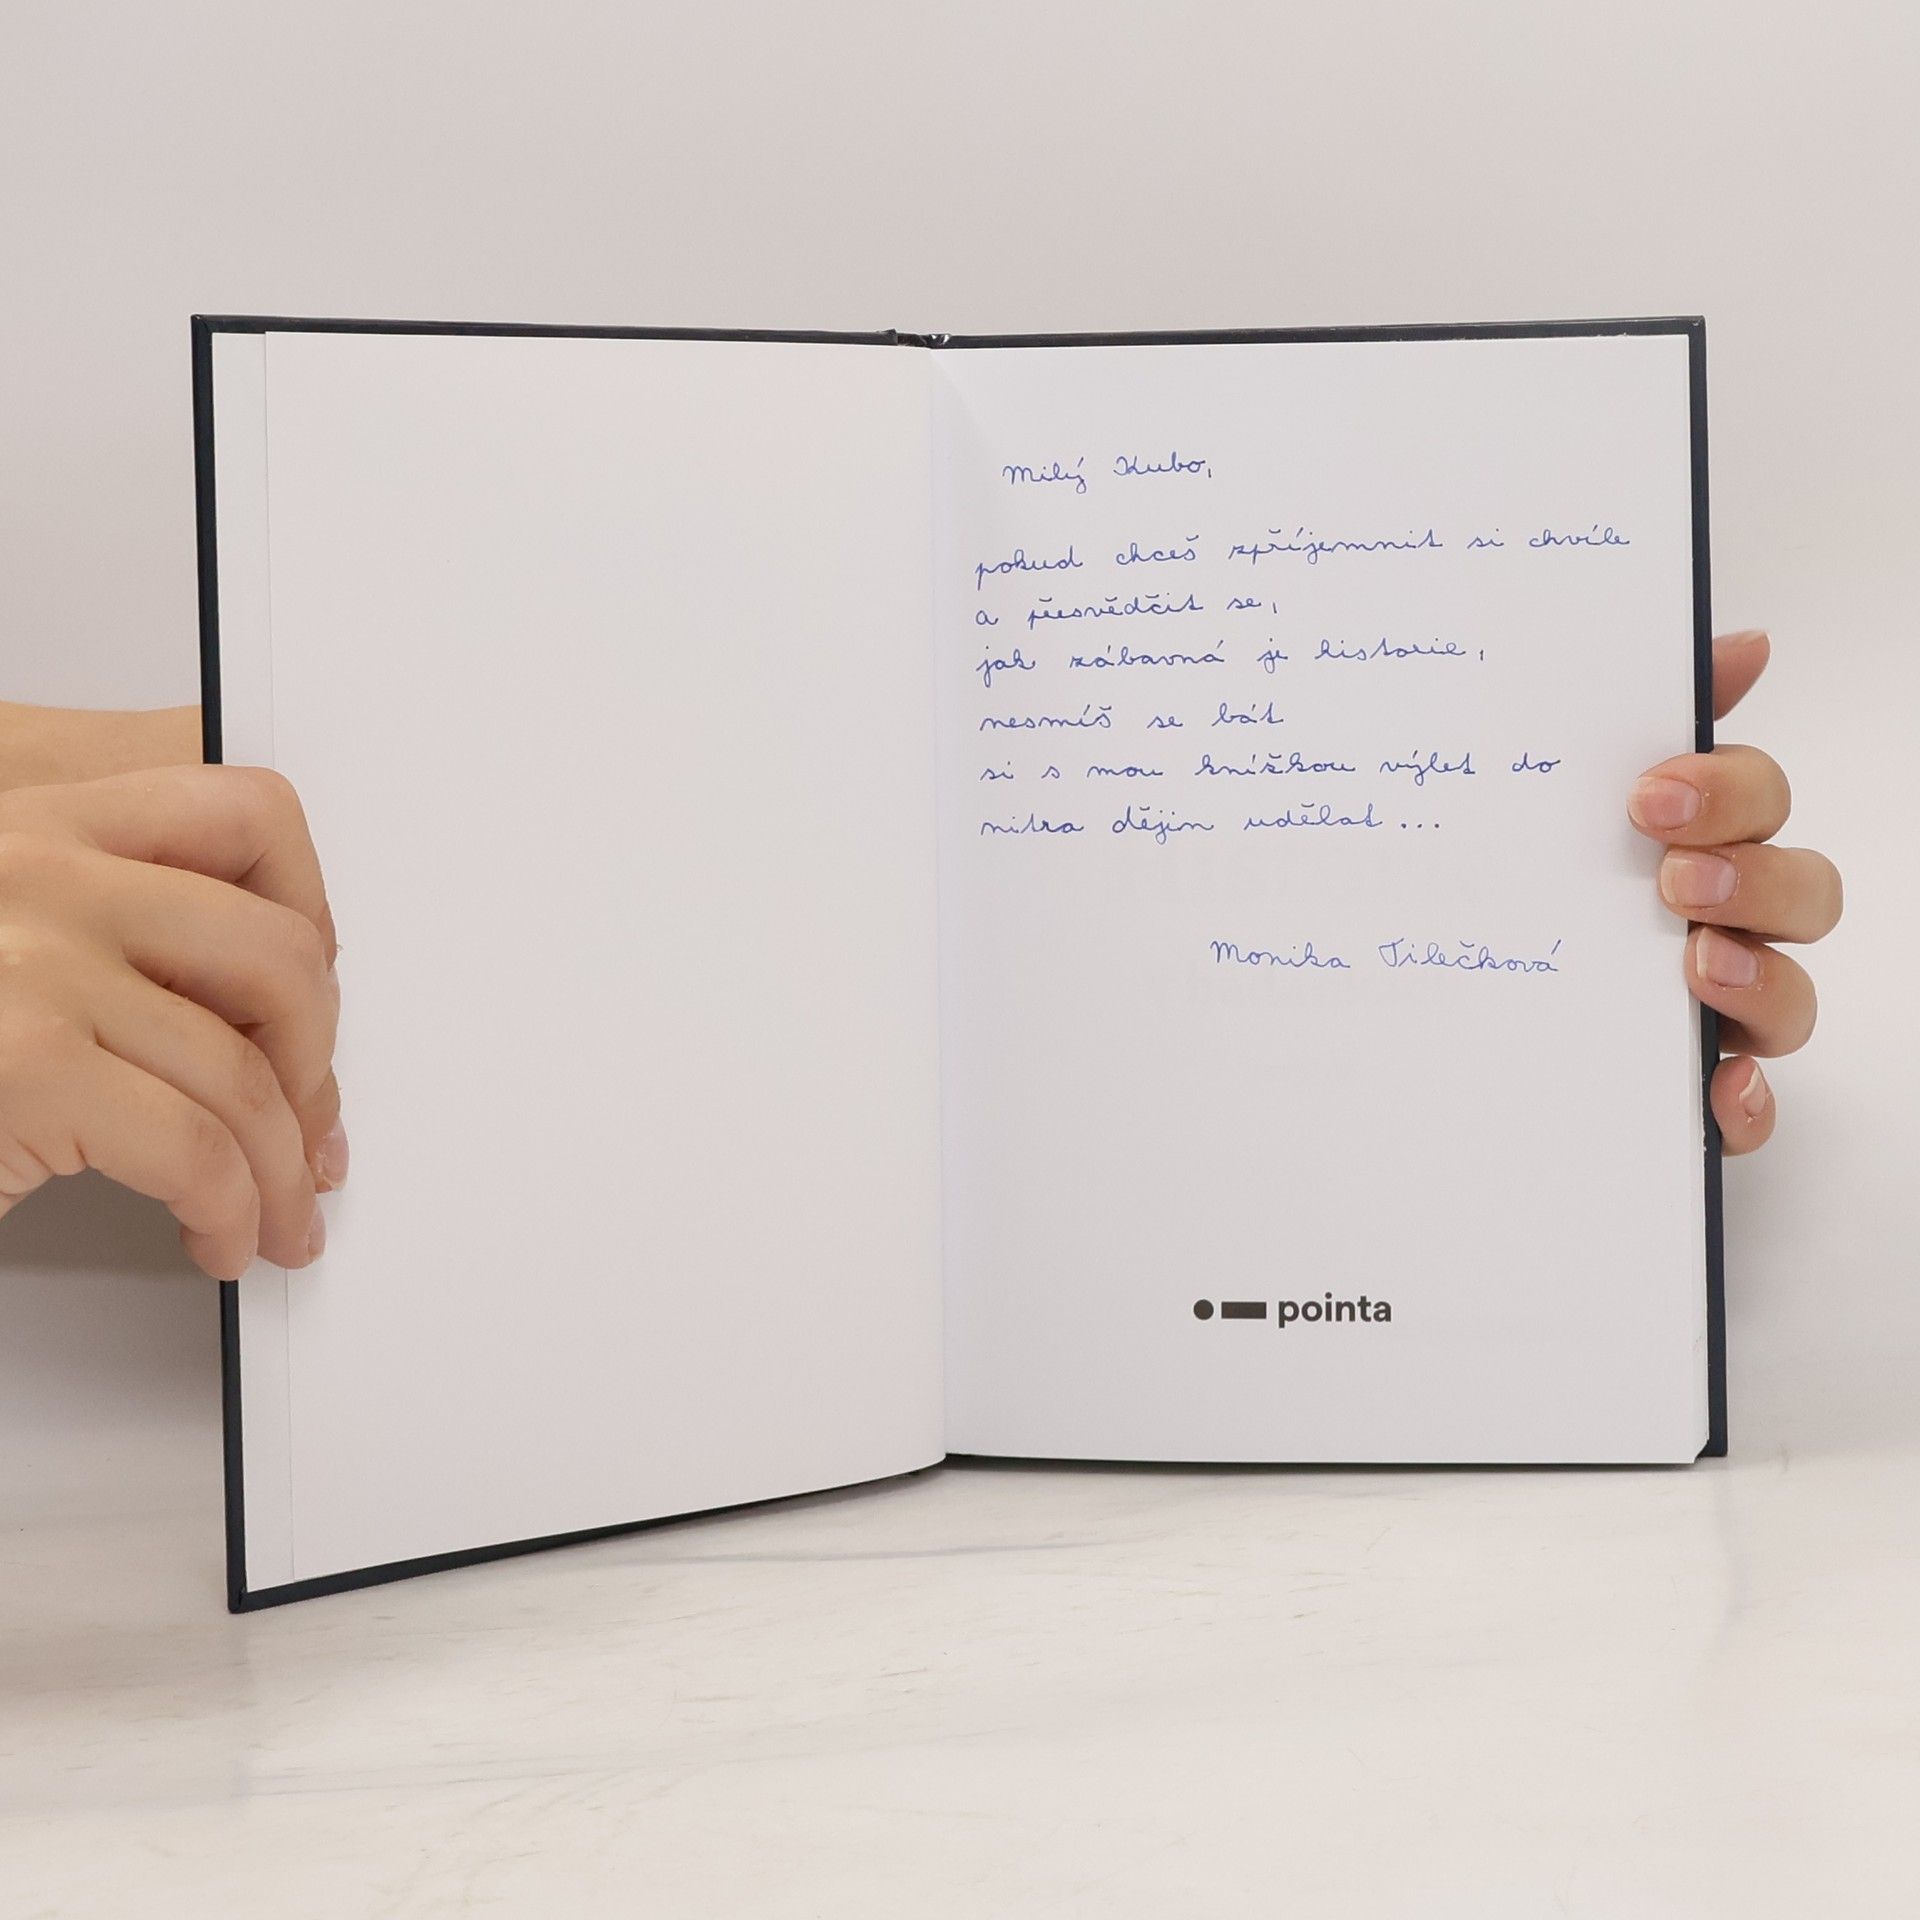 Milý Kubo,
pokud chceš zpříjemnit si chvíle
a přesvědčit se,
jak zábavná je historie,
nesmíš se bát
si s mou knížkou výlet do
nitra dějin udělat...
Monika Tilečková
pointa